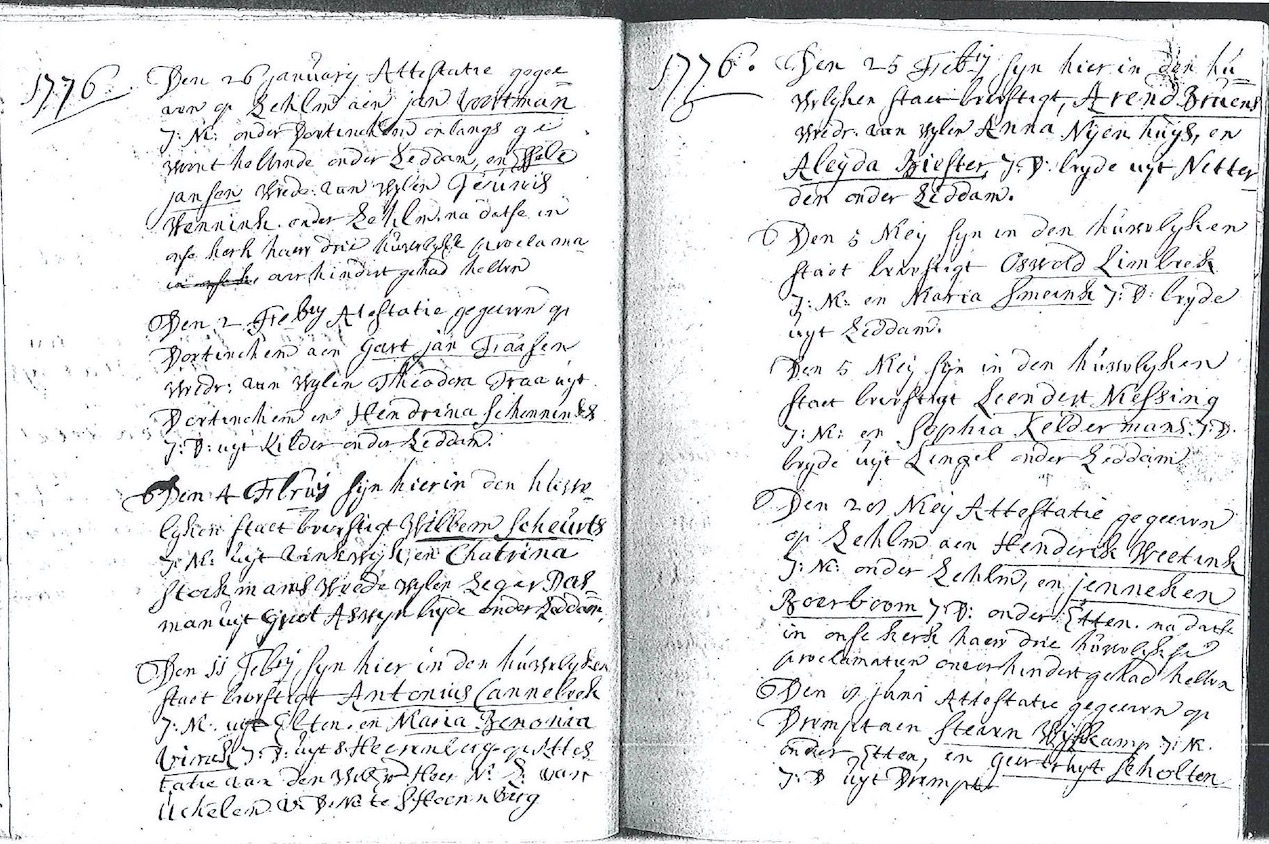 1776.
Den 26 january Attestatie gegee
ven op Zehlm aen jan Voortman
J: M: onder Dortinchem onlangs ge
woont hebbende onder Zeddam, en
jansen Wede: van Wylen Teunis
Wennink. onder Zehlm. na datse in
onse kerk haer drie huwelykse proclama
onverhindert gehad hebben
Den 2 Feb:ry Atestatie gegeeven op
Dortinchem aen Gart jan Fraasen
Wedr: van Wylen Theodora Fraa uyt
Dortinchem en Hendrina Schenninks
J: D: uyt Kilder onder Zeddam.
Den 4 Febru: syn hier in den huwe
lyken staet bevestigt Willem Scheurts
J: M: uyt en Chatrina
Stockmans Wede Wylen Zeger Das
man uyt groot Aswyn byde onder Zeddam,
Den 11 Feb:ry syn hier in den huwelyken
staet bevestigt Antonius Cannebeek
J: M: uyt Elten. en Maria Benonia
J: D: uyt s Heerenberg op Attes
tatie van den Heer N: D: van
Uchelen V: D: M: te s Heerenberg
1776.
Den 25 Feb:ry syn hier in den hu
welyken staet bevestigt, Arend Bruens
Wedr. van Wylen Anna Nyenhuys, en
Aleyda Biester, J: D: beyde uyt Netter
den onder Zeddam.
Den 5 Mey syn in den huwelyken
staet bevestigt Oswold Limbeek
J: M: en Maria Smeink J: D: beyde
uyt Zeddam.
Den 5 Mey syn in den huwelyken
staet bevestigt Leendert Messing
J: M: en Sophia Keldermans. J: D.
beyde uyt Lengel onder Zeddam
Den 20 Mey Attestatie gegeeven
op Zehlm aen Henderik Weetink
J: M: onder Zehlm, en jenneken
Boerboom J: D: onder Etten. na datse
in onse kerk haer drie huwelykse
proclamatien onverhindert gehad hebben
Den 9 juni Attestatie gegeeven op
Drempt aen Steven Wyskamp J: M.
onder Etten, en geertruyt Scholten
J: D uyt Drempt